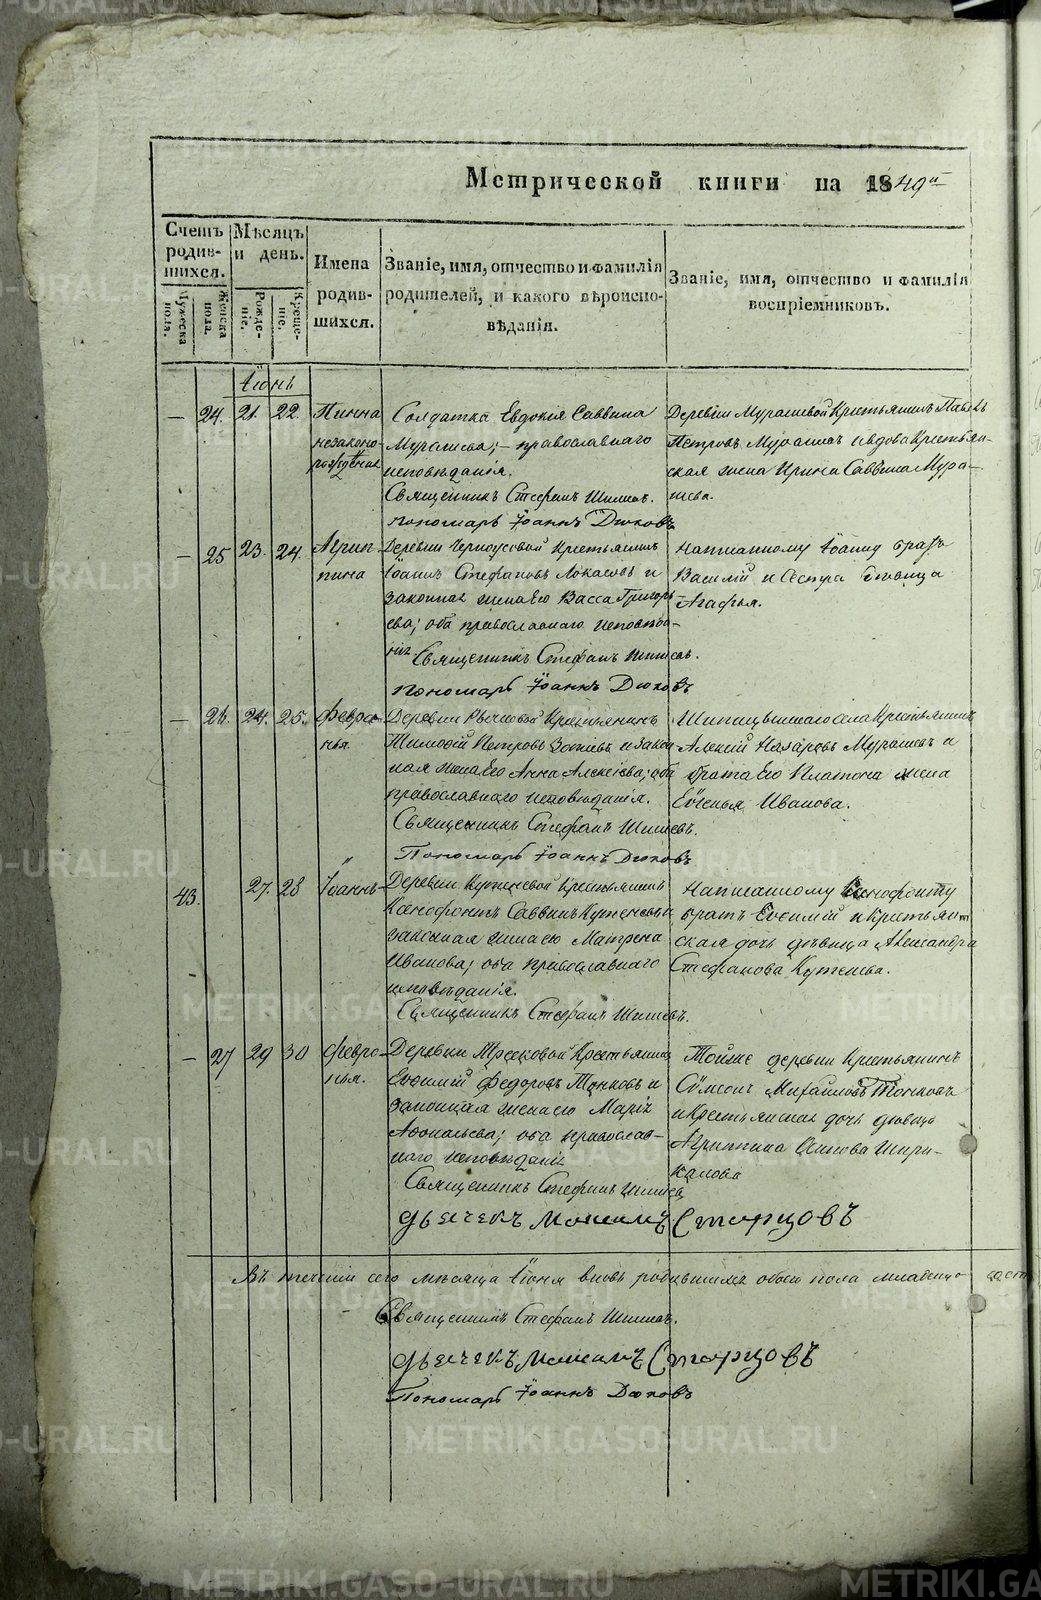 Метрической книги на 1849й
Счетъ родившихся.
Мужеска пола.
Женска пола.
Мѣсяцъ и день.
Рожденіе.
Крещеніе.
Имена родившихся.
Званіе, имя, отчество и фамилія родителей, и какого вѣроисповѣданія.
Званіе, имя, отчество и фамилія воспріемниковъ.
Іюнь
— 24. 21. 22.
Пинна
незаконо-
рожденная
Солдатка Евдокія Саввина
Мурашева; — православнаго
исповѣданія.
Священникъ Стефанъ Шишевъ.
Пономарь Іоаннъ Дюковъ
Деревни Мурашевой Крестьянинъ Павелъ
Петровъ Мурашевъ и вдова Крестьян-
ская жена Ирина Саввина Мура-
шева.
— 25 23. 24.
Агрип-
пина
Деревни Черноусовой Крестьянинъ
Іоаннъ Стефановъ и
законная жена Его Васса Григорь-
ева; оба православнаго исповѣда-
нія.
Священникъ Стефанъ Шишевъ.
Пономарь Іоаннъ Дюковъ
Написанному Іоанну братъ
Василій и Сестра дѣвица
Агафья.
— 26. 24. 25.
Февро-
нья.
Деревни Крестьянинъ
Тимофей Петровъ Зотѣевъ и закон-
ная жена Его Анна Алексѣева; оба
православнаго исповѣданія.
Священникъ Стефанъ Шишевъ.
Пономарь Іоаннъ Дюковъ
села Крестьянинъ
Алексій Назаровъ Мурашевъ и
брата Его Платона жена
Евгенья Иванова.
43. 27. 28
Іоаннъ
Деревни Крестьянинъ
Ксенофонтъ Саввинъ и
законная жена его Матрена
Иванова; оба православнаго
исповѣданія.
Священникъ Стефанъ Шишевъ.
Написанному Ксенофонту
братъ Евфимій и Крестьян-
ская дочь дѣвица Александра
Стефанова
— 27 29 30
Февро-
нья.
Деревни Крестьянинъ
Евфимій Федоровъ Тонковъ и
законная жена его Марія
оба православ-
наго исповѣданія
Священникъ Стефанъ Шишевъ
Дьячекъ Максимъ Старцовъ
Тойже деревни Крестьянинъ
Сѵмеонъ Михайловъ Тонковъ
и Крестьянская дочь дѣвица
Агриппина Осипова Шири-
калова
Въ теченіи сего мѣсяца Іюня вновь родившихся обоего пола младенцо
Священникъ Стефанъ Шишевъ.
Дьячекъ Максимъ Старцовъ
Пономарь Іоаннъ Дюковъ
METRIKI.GASO-URAL.RU